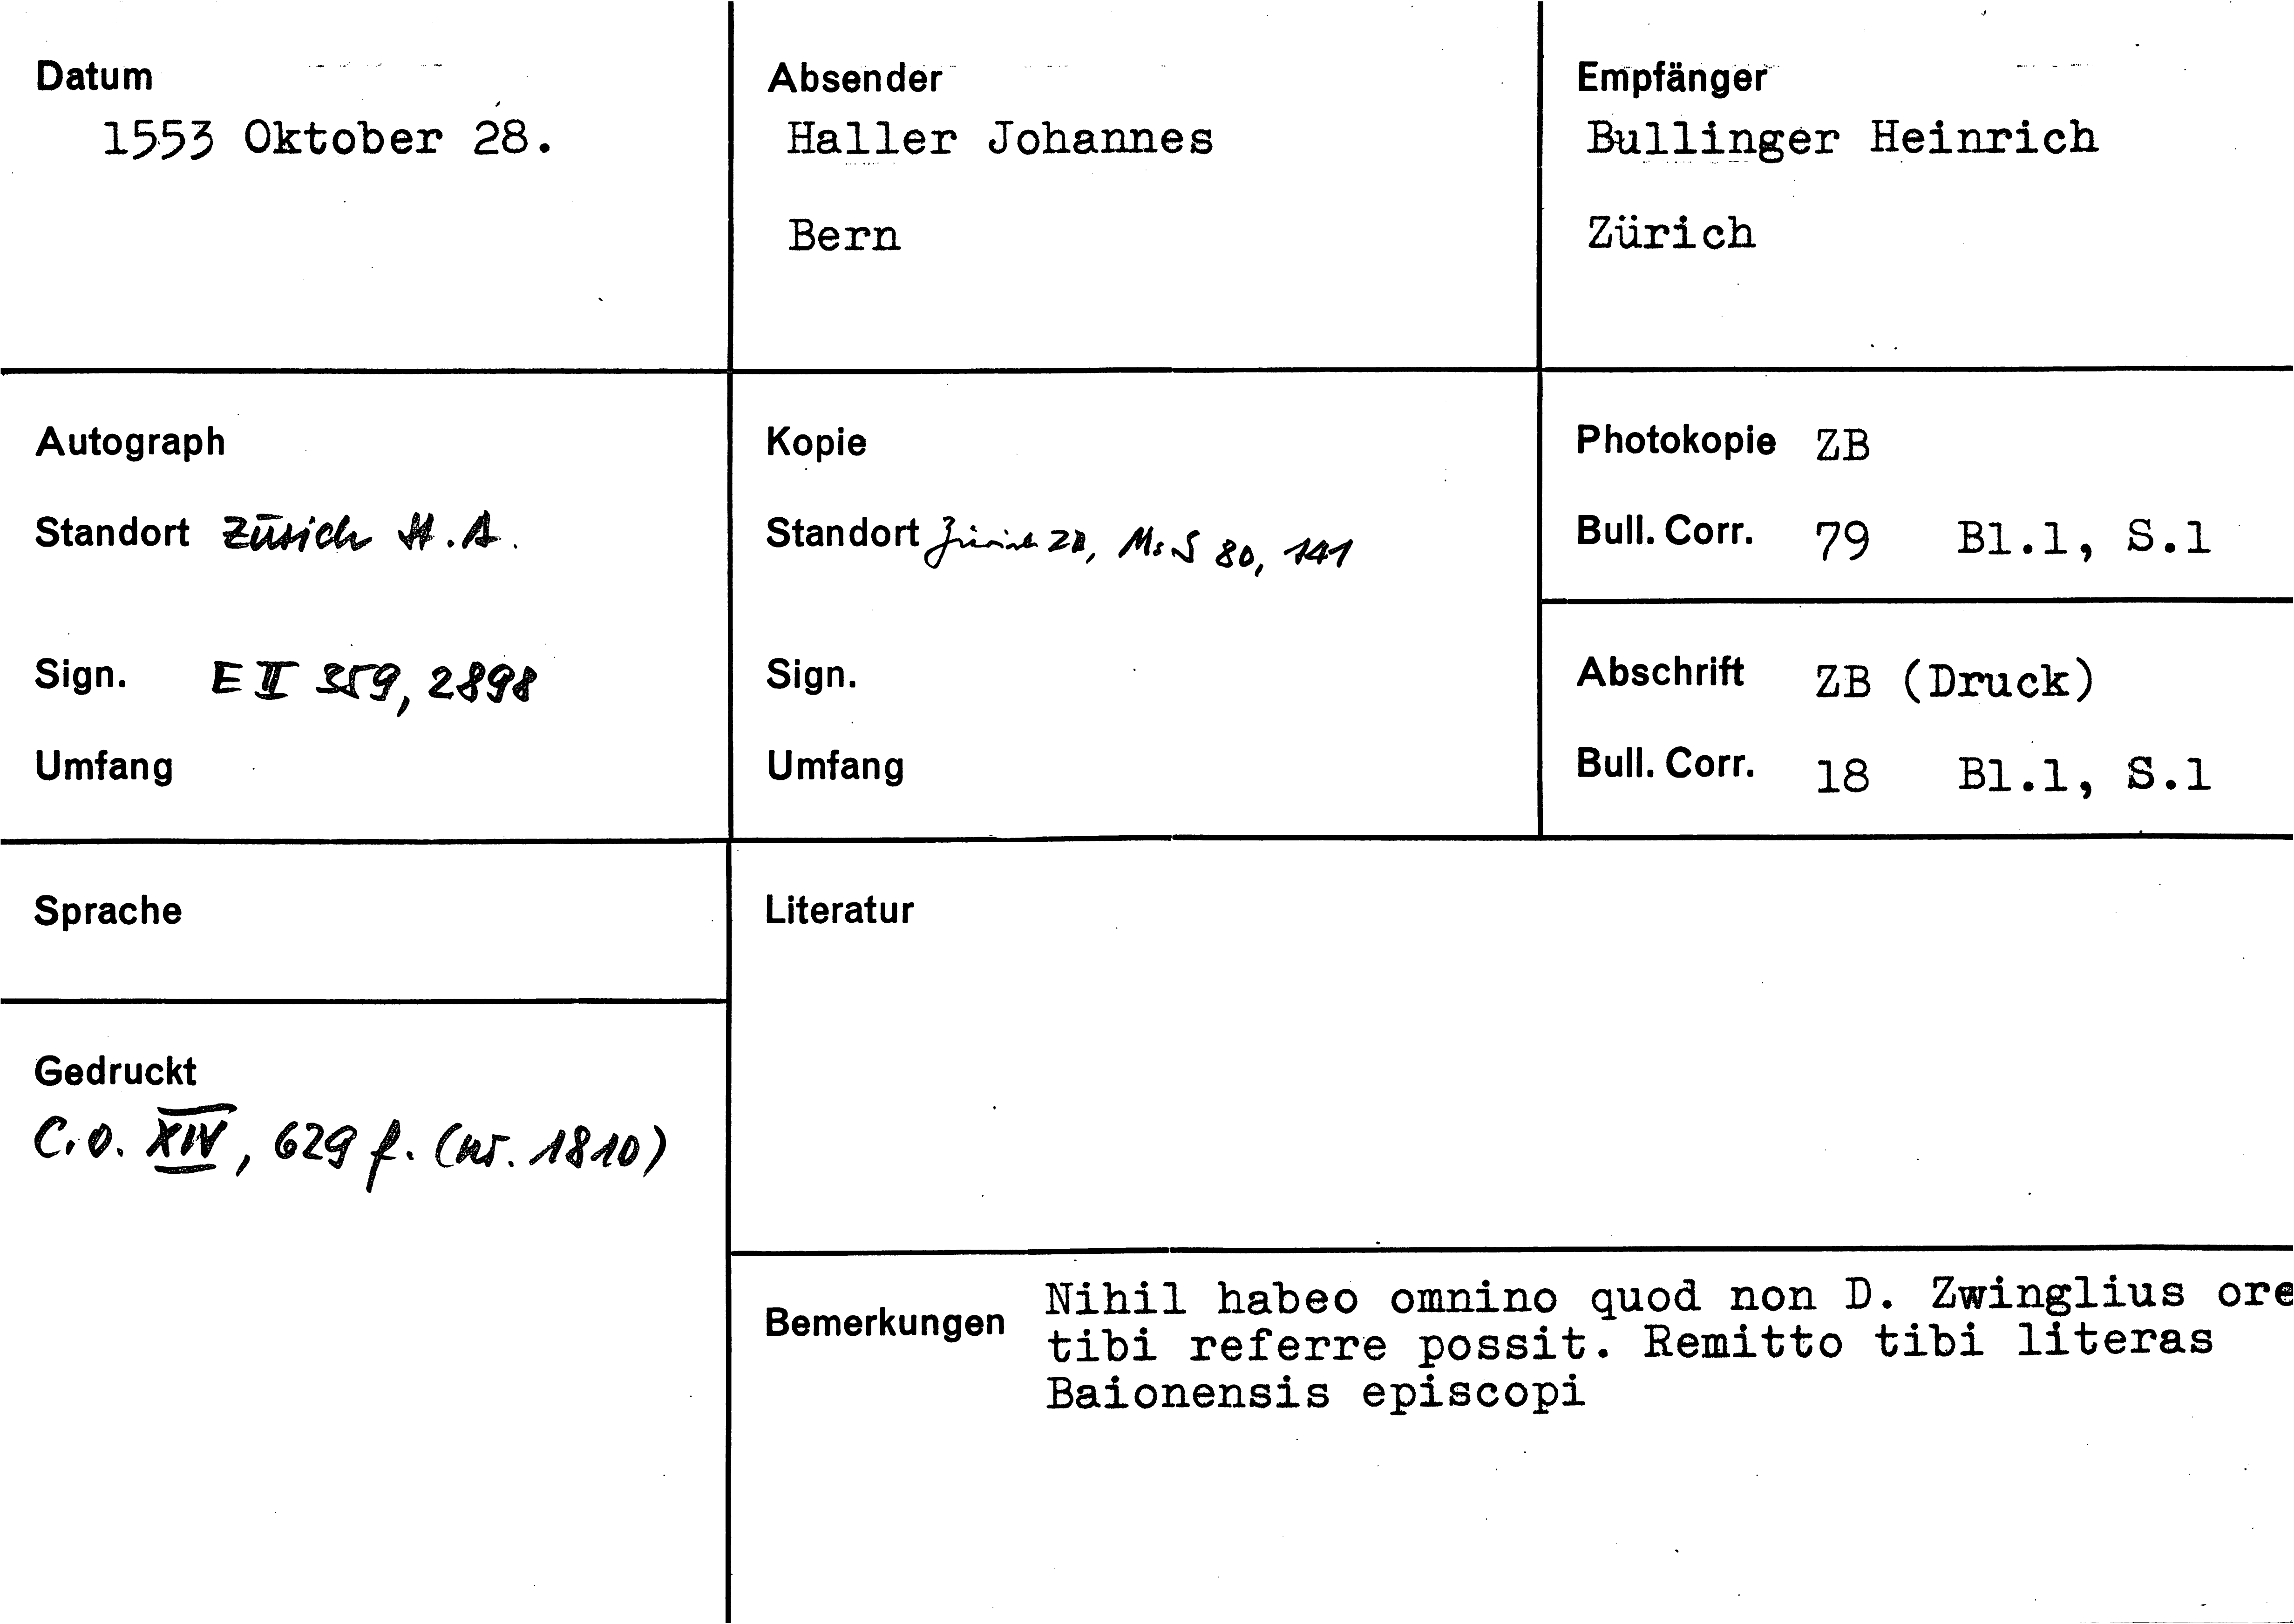 Datum
1553 Oktober 28.
Absender
Haller Johannes
Bern
Empfänger
Bullinger Heinrich
Zürich
Autograph
Standort Zürich St.A.
Sign. E II 359, 2898
Umfang
Kopie
Standort Zürich ZB, Ms S 80, 141
Sign.
Umfang
Photokopie ZB
Bull. Corr. 79 Bl.1, S.1
Abschrift ZB (Druck)
Bull. Corr. 18 Bl.1, S.1
Sprache
Literatur
Gedruckt
C.O. XIV, 629 f. (nr. 1810)
Bemerkungen
Nihil habeo omnino quod non D. Zwinglius ore
tibi referre possit. Remitto tibi literas
Baionensis episcopi